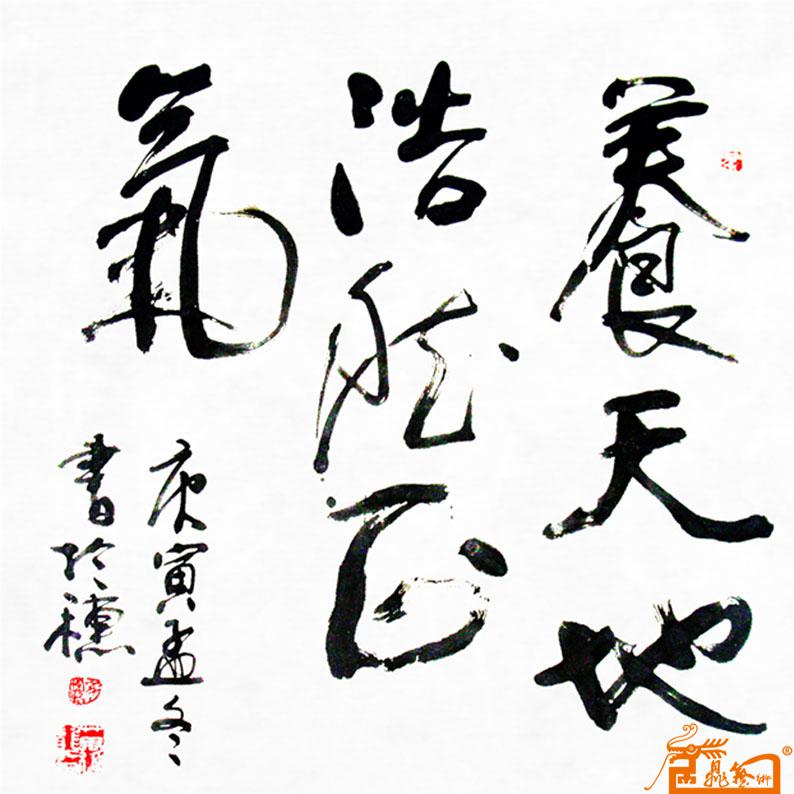 養天地
浩然正
氣
庚寅孟冬
書於穗